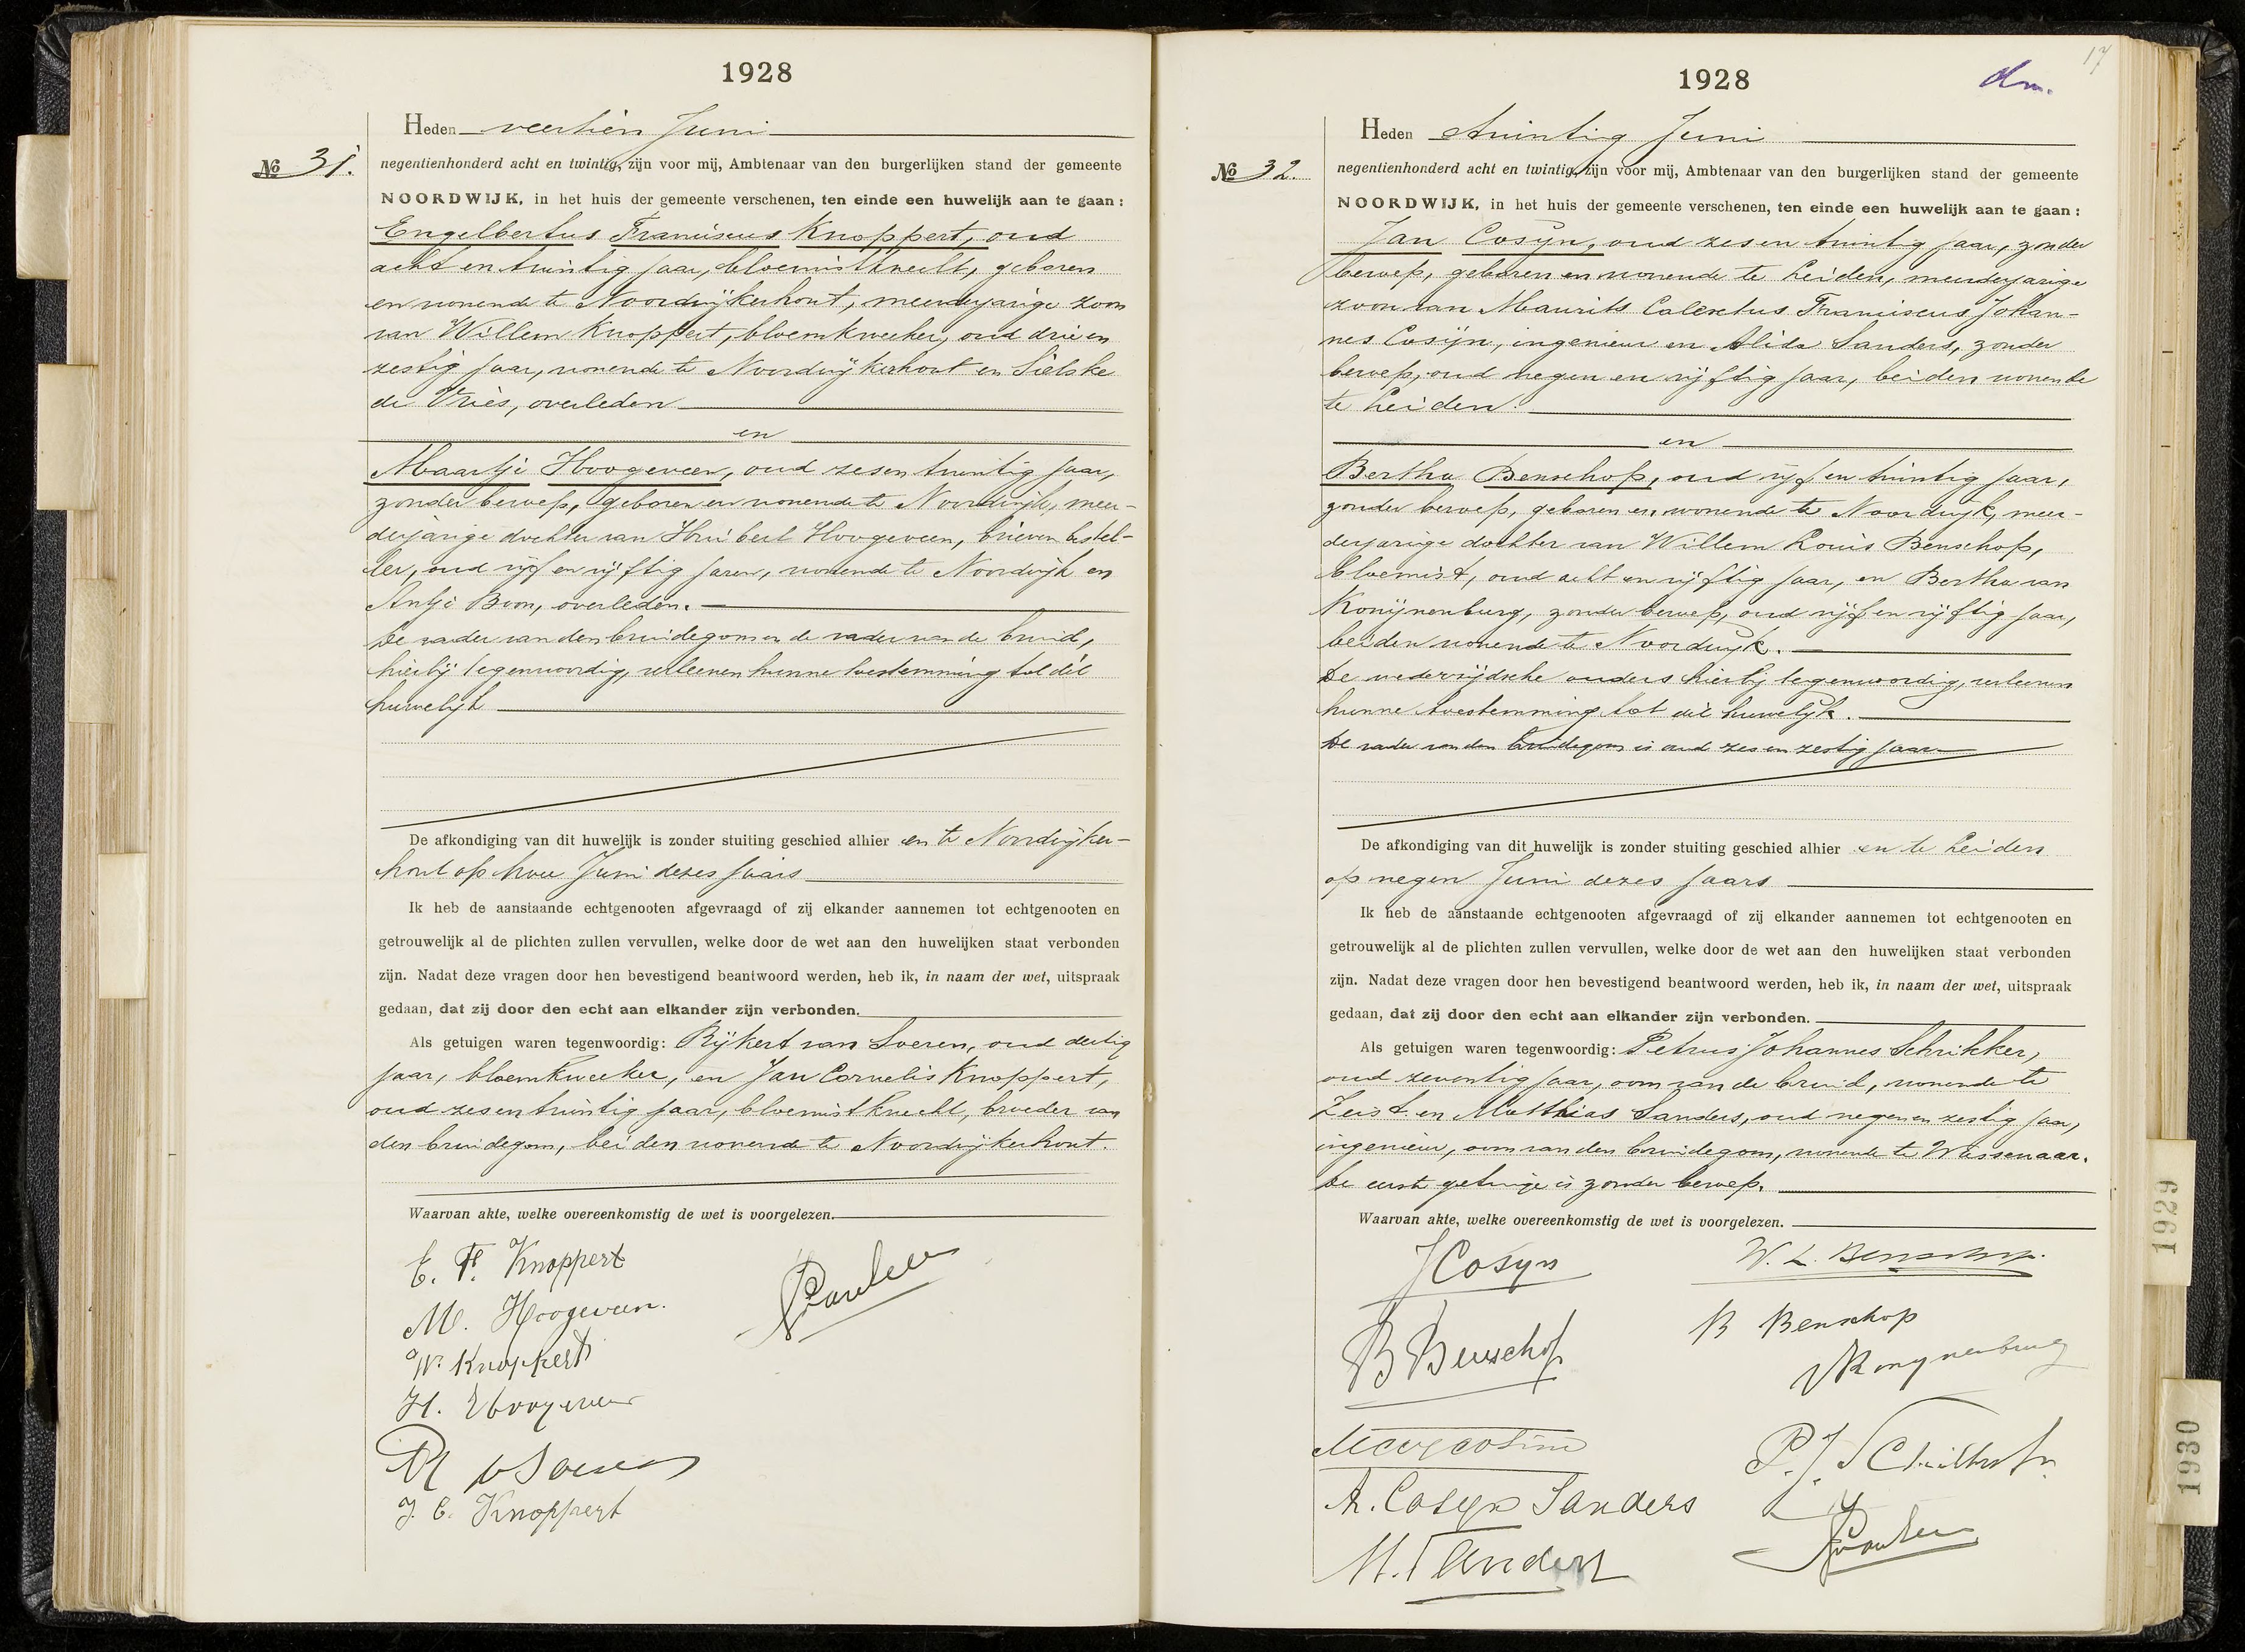 1928
Heden veertien Juni
No 31. negentienhonderd acht en twintig, zijn voor mij, Ambtenaar van den burgerlijken stand der gemeente
NOORDWIJK, in het huis der gemeente verschenen, ten einde een huwelijk aan te gaan:
Engelbertus Franciscus Knoppert, oud
acht en twintig jaar, bloemistknecht, geboren
en wonende te Noordwijkerhout, meerderjarige zoon
van Willem Knoppert, bloemkweeker, oud drie en
zestig jaar, wonende te Noordwijkerhout en Sielske
de Vries, overleden
en
Maartje Hoogeveen, oud zesen twintig jaar,
zonder beroep, geboren en wonende te Noordwijk, meer-
derjarige dochter van Huibert Hoogeveen, brieven bestel-
ler, oud vijf en vijftig jaren, wonende te Noordwijk en
Antje Boon, overleden.
De vader van den bruidegom en de vader van de bruid,
hierbij tegenwoordig, verleenen hunne toestemming tot dit
huwelijk
De afkondiging van dit huwelijk is zonder stuiting geschied alhier en te Noordwijker-
hout op twee Juni dezes jaars
Ik heb de aanstaande echtgenooten afgevraagd of zij elkander aannemen tot echtgenooten en
getrouwelijk al de plichten zullen vervullen, welke door de wet aan den huwelijken staat verbonden
zijn. Nadat deze vragen door hen bevestigend beantwoord werden, heb ik, in naam der wet, uitspraak
gedaan, dat zij door den echt aan elkander zijn verbonden.
Als getuigen waren tegenwoordig: Rijkert van Soeren, oud dertig
jaar, bloemkweeker, en Jan Cornelis Knoppert,
oud zesen twintig jaar, bloemistknecht, broeder van
den bruidegom, beiden wonende te Noordwijkerhout.
Waarvan akte, welke overeenkomstig de wet is voorgelezen.
E. F. Knoppert
M. Hoogeveen.
W. Knoppert
H. Hoogeveen
R v Soeren
J. C. Knoppert
17
dm.
1928
Heden twintig Juni
No 32. negentienhonderd acht en twintig, zijn voor mij, Ambtenaar van den burgerlijken stand der gemeente
NOORDWIJK, in het huis der gemeente verschenen, ten einde een huwelijk aan te gaan:
Jan Cosijn, oud zesen twintig jaar, zonder
beroep, geboren en wonende te Leiden, meerderjarige
zoon van Maurits Calextus Franciscus Johan-
nes Cosijn, ingenieur en Alida Sanders, zonder
beroep, oud negen en vijftig jaar, beiden wonende
te Leiden.
en
Bertha Benschop, oud vijf en twintig jaar,
zonder beroep, geboren en wonende te Noordwijk, meer-
derjarige dochter van Willem Louis Benschop,
bloemist, oud acht en vijftig jaar, en Bertha van
Konijnenburg, zonder beroep, oud vijf en vijftig jaar,
beiden wonende te Noordwijk.
De wederzijdsche ouders hierbij tegenwoordig, verleenen
hunne toestemming tot dit huwelijk.
De vader van den bruidegom is oud zes en zestig jaar
De afkondiging van dit huwelijk is zonder stuiting geschied alhier en te Leiden
op negen Juni dezes jaars
Ik heb de aanstaande echtgenooten afgevraagd of zij elkander aannemen tot echtgenooten en
getrouwelijk al de plichten zullen vervullen, welke door de wet aan den huwelijken staat verbonden
zijn. Nadat deze vragen door hen bevestigend beantwoord werden, heb ik, in naam der wet, uitspraak
gedaan, dat zij door den echt aan elkander zijn verbonden.
Als getuigen waren tegenwoordig: Petrus Johannes Schrikker,
oud zeventig jaar, oom van de bruid, wonende te
Zeist en Matthias Sanders, oud negen en zestig jaar,
ingenieur, oom van den bruidegom, wonende te Wassenaar.
De eerste getuige is zonder beroep.
Waarvan akte, welke overeenkomstig de wet is voorgelezen.
J Cosyn
W. L. Benschop.
B Benschop
B Benschop
v Konynenburg
A. Cosyn Sanders
M. Sanders
1929
1930